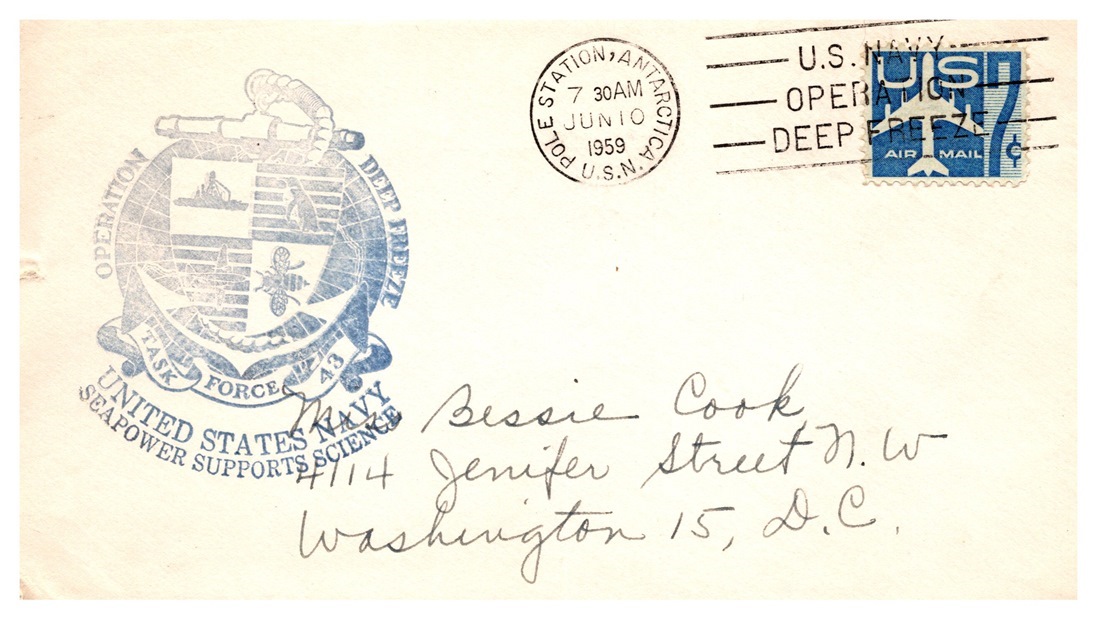 OPERATION DEEP FREEZE
TASK FORCE 43
UNITED STATES NAVY
SEAPOWER SUPPORTS SCIENCE
POLE STATION, ANTARCTICA
7 30AM
JUN 10
1959
U.S.N.
U.S. NAVY
OPERATION
DEEP FREEZE
US
7¢
AIR MAIL
Mrs Bessie Cook
4114 Jenifer Street N.W
Washington 15, D.C.